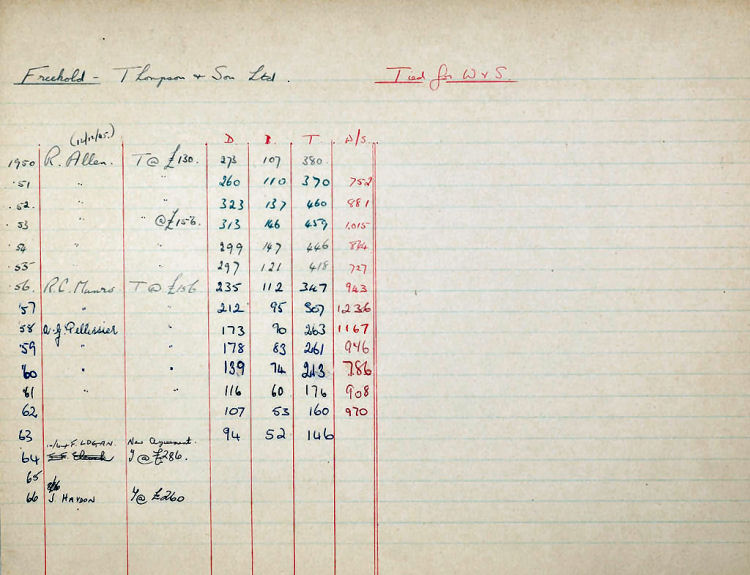 Freehold - Thompson & Son Ltd. Tied for W & S.
D B T A/S.
1950 R. Allen. T @ £130. 273 107 380
'51 " " 260 110 370 752
'52. " " 323 137 460 881
'53 " " @ £156. 313 146 459 1,015
'54 " " 299 147 446
'55 " " 297 121 418 727
'56. R.C. Munro T @ £156 235 112 347 943
'57 " " 212 95 307 1236
'58 A.J. Pellissier " 173 90 263 1167
'59 " " 178 83 261 946
'60 " " 139 74 213 786
'61 " " 116 60 176 908
62 " " 107 53 160 970
63 94 52 146
F. LOGAN. New Agreement.
64 Y @ £286.
65
66 J HAYDON Y @ £260